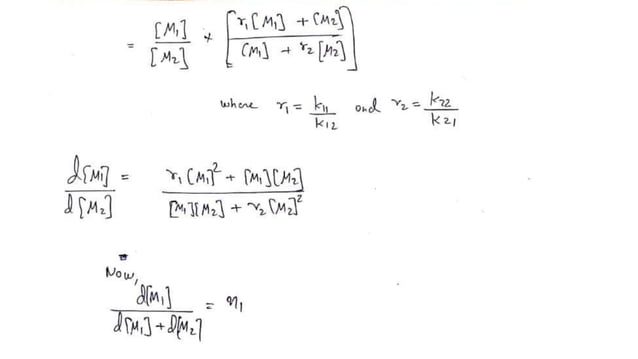 = [M₁]/[M₂] * [ (r₁[M₁] + [M₂]) / ([M₁] + r₂[M₂]) ]
where r₁ = k₁₁/k₁₂ and r₂ = k₂₂/k₂₁
d[M₁]/d[M₂] = (r₁[M₁]² + [M₁][M₂]) / ([M₁][M₂] + r₂[M₂]²)
Now,
d[M₁] / (d[M₁] + d[M₂]) = n₁